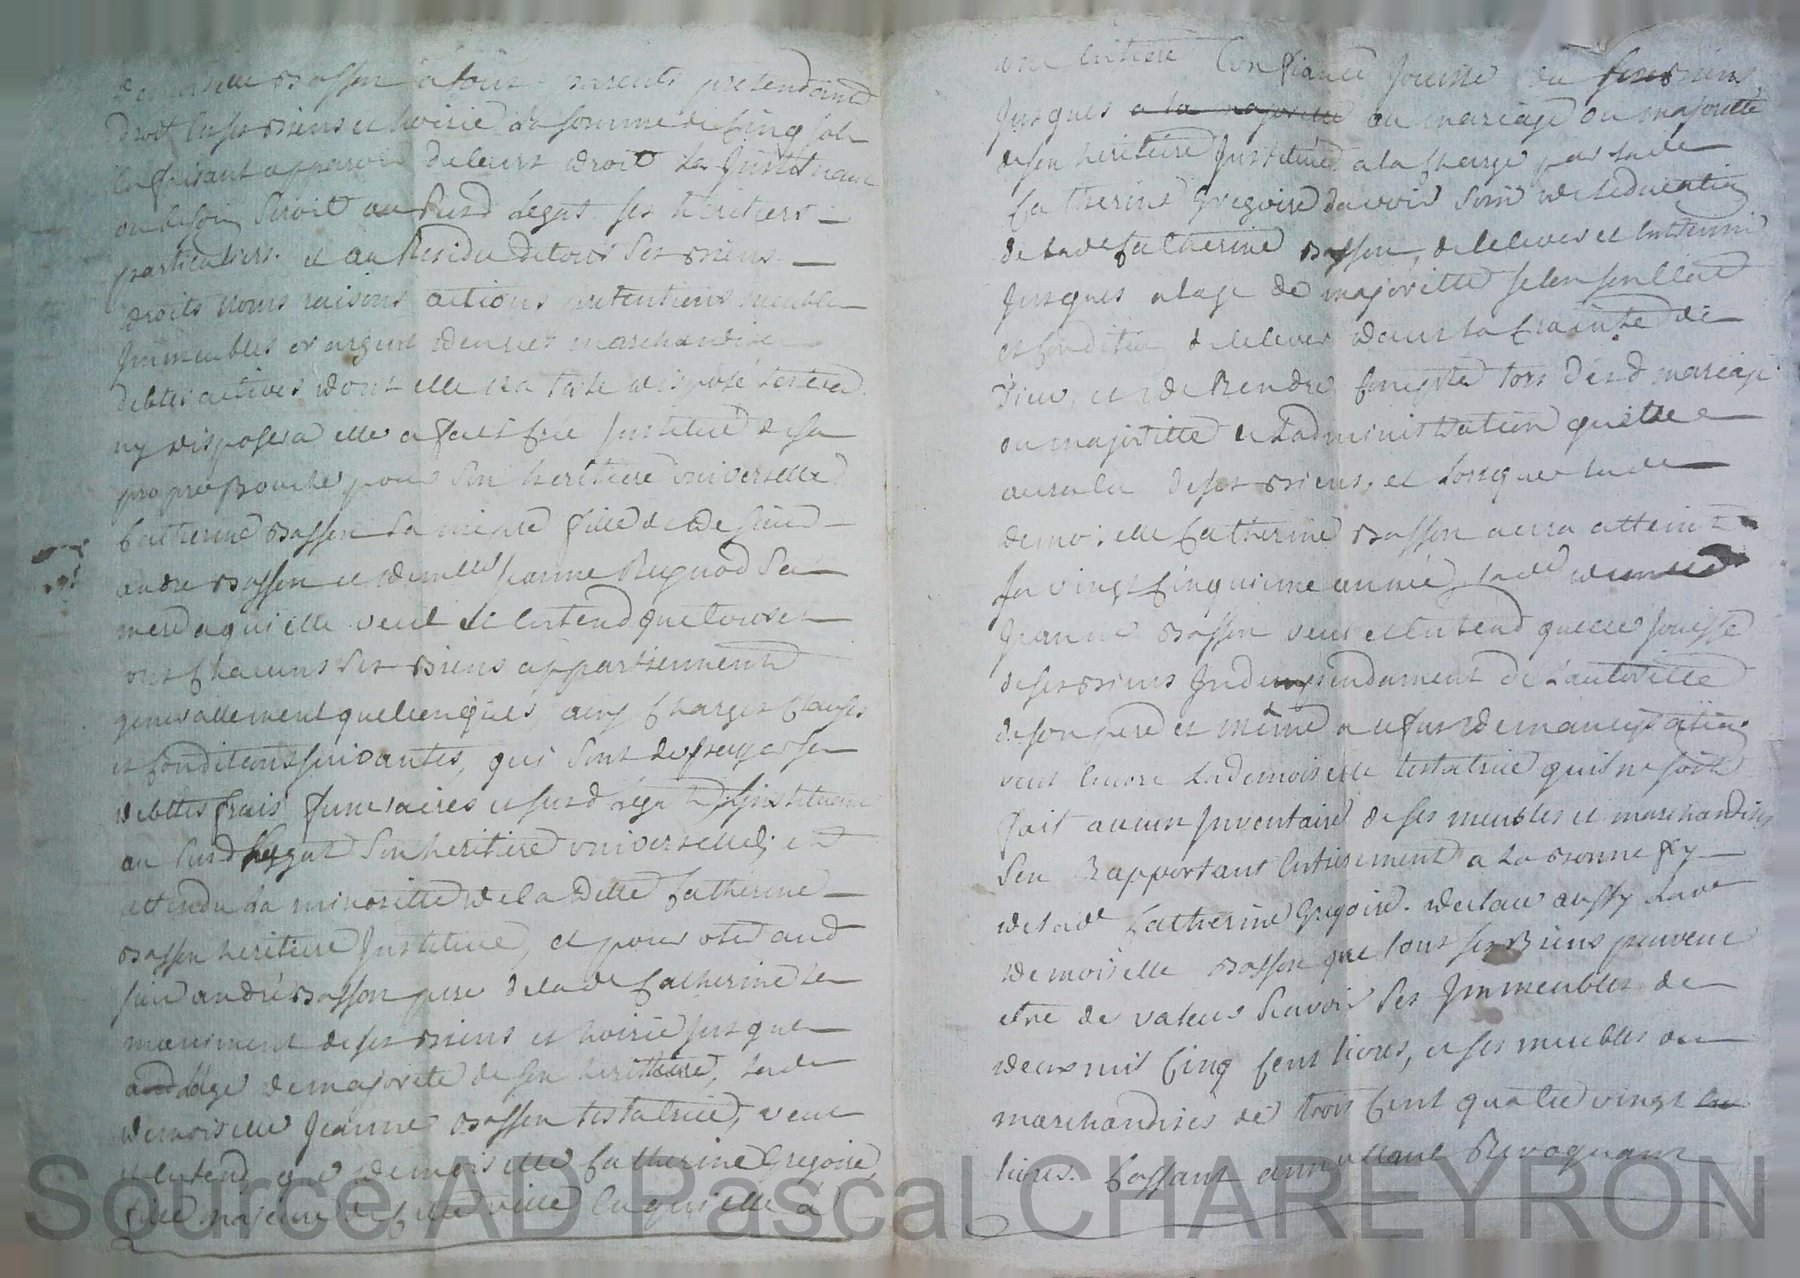 demoiselle Basson a tous parents pretendant
droit en ses biens et hoirie la somme de cinq sols
en faisant apparoir de leurs droit les Instituant
ou besoin seroit au susd légat ses heritiers
particuliers. et au Residu de tous ses biens
droits noms raisons actions pretentions meubles
Immeubles or argent denrées marchandise
debtes actives dont elle n'a testé disposé
ny disposera elle a fait créé Institué de sa
propre Bouche pour son heritiere universelle
Catherine Basson sa niepce fille de sieur
andré Basson et demlle Jeanne Reynod sa
mere a qui elle veut et entend que tous et
uns chacuns ses Biens appartiennent
generallement quelconques, aux charges clauses
et conditions suivantes, qui sont de payer ses
debttes frais funeraires et susd légat Instituant
au susd legat son heritiere universelle; et
attendu la minoritté de la Delle Catherine
Basson heritiere Instituée, et pour oter aud
sieur andré Basson pere de lade Catherine le
maniment de ses biens et hoirie jusques
a l'age de majorité de son heritiere, lade
demoiselle Jeanne Basson testatrice, veut
et entend que demoiselle Catherine Gregoire
fille majeure de cette ville en qui elle a
une entiere Confiance Jouisse de ses biens
Jusques a la majorité au mariage ou majoritté
de son heritiere Instituée a la charge par lade
Catherine Gregoire d'avoir soin de l'education
de lade Catherine Basson, de l'elever et entretenir
Jusques a l'age de majoritté selon son état
et condition de l'elever dans la Crainte de
Dieu, et de Rendre Compte lors dud mariage
ou majoritté de l'administration quelle
aura eu de ses Biens, et lorsque lade
demoiselle Catherine Basson aura atteint
sa vingt Cinquieme année, lade demlle
Jeanne Basson veut et entend quelle jouisse
de ses biens Independament de l'autoritté
de son pere et même au cas d'emancipation
veut encore la demoiselle testatrice quil ne soit
fait aucun Inventaire de ses meubles et marchandises
s'en Rapportant entierement a la Bonne foy
de lade Catherine Gregoire. declare aussy lade
demoiselle Basson que tous ses Biens peuvent
etre de valeur scavoir ses Immeubles de
deux mil Cinq Cent livres, et ses meubles ou
marchandises de trois Cent quatre vingt
livres. Cassant annullant Revoquant
Source AD Pascal CHAREYRON